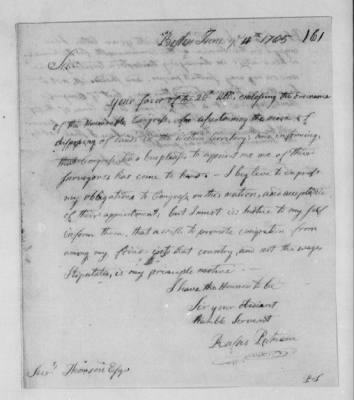 June 4th 1785 161
Sir
your favor of the 28th Ult. enclosing the Ordinance
of the Honourable Congress for ascertaining the mode of
disposing of Lands in the Western Territory; and informing
that Congress has been pleased to appoint me one of their
Surveyors has come to hand — I beg leave to express
my obligations to Congress on this notion, and acceptance
of their appointment, but I must in Justice to my self
inform them, that a wish to promote emigration from
among my friends into that country, and not the wages
Stipulated, is my principle motive —
I have the Honour to be
Sir your obediant
Humble Servant
Rufus Putnam
Thomson Esqr